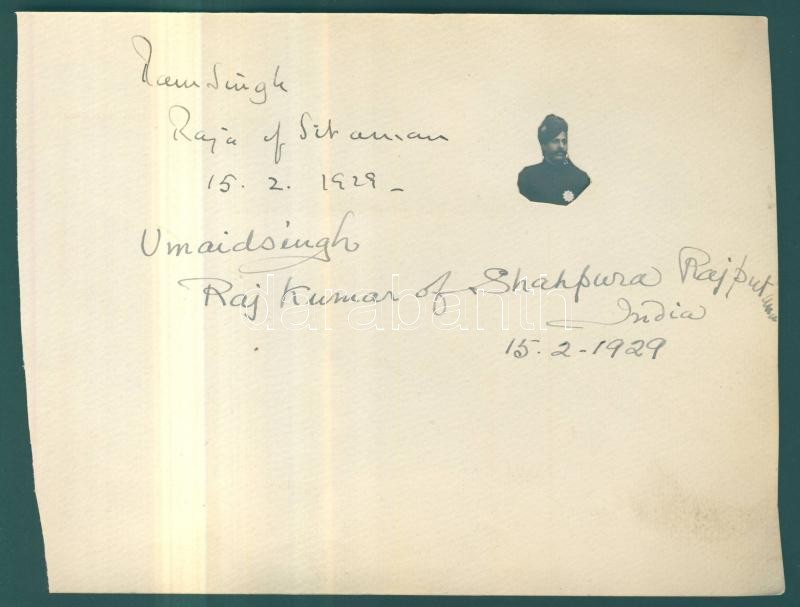 Ram Singh
Raja of Sitamau
15. 2. 1929 -
Umaidsingh
Raj Kumar of Shahpura Rajputana
India
15. 2 - 1929
darabanth